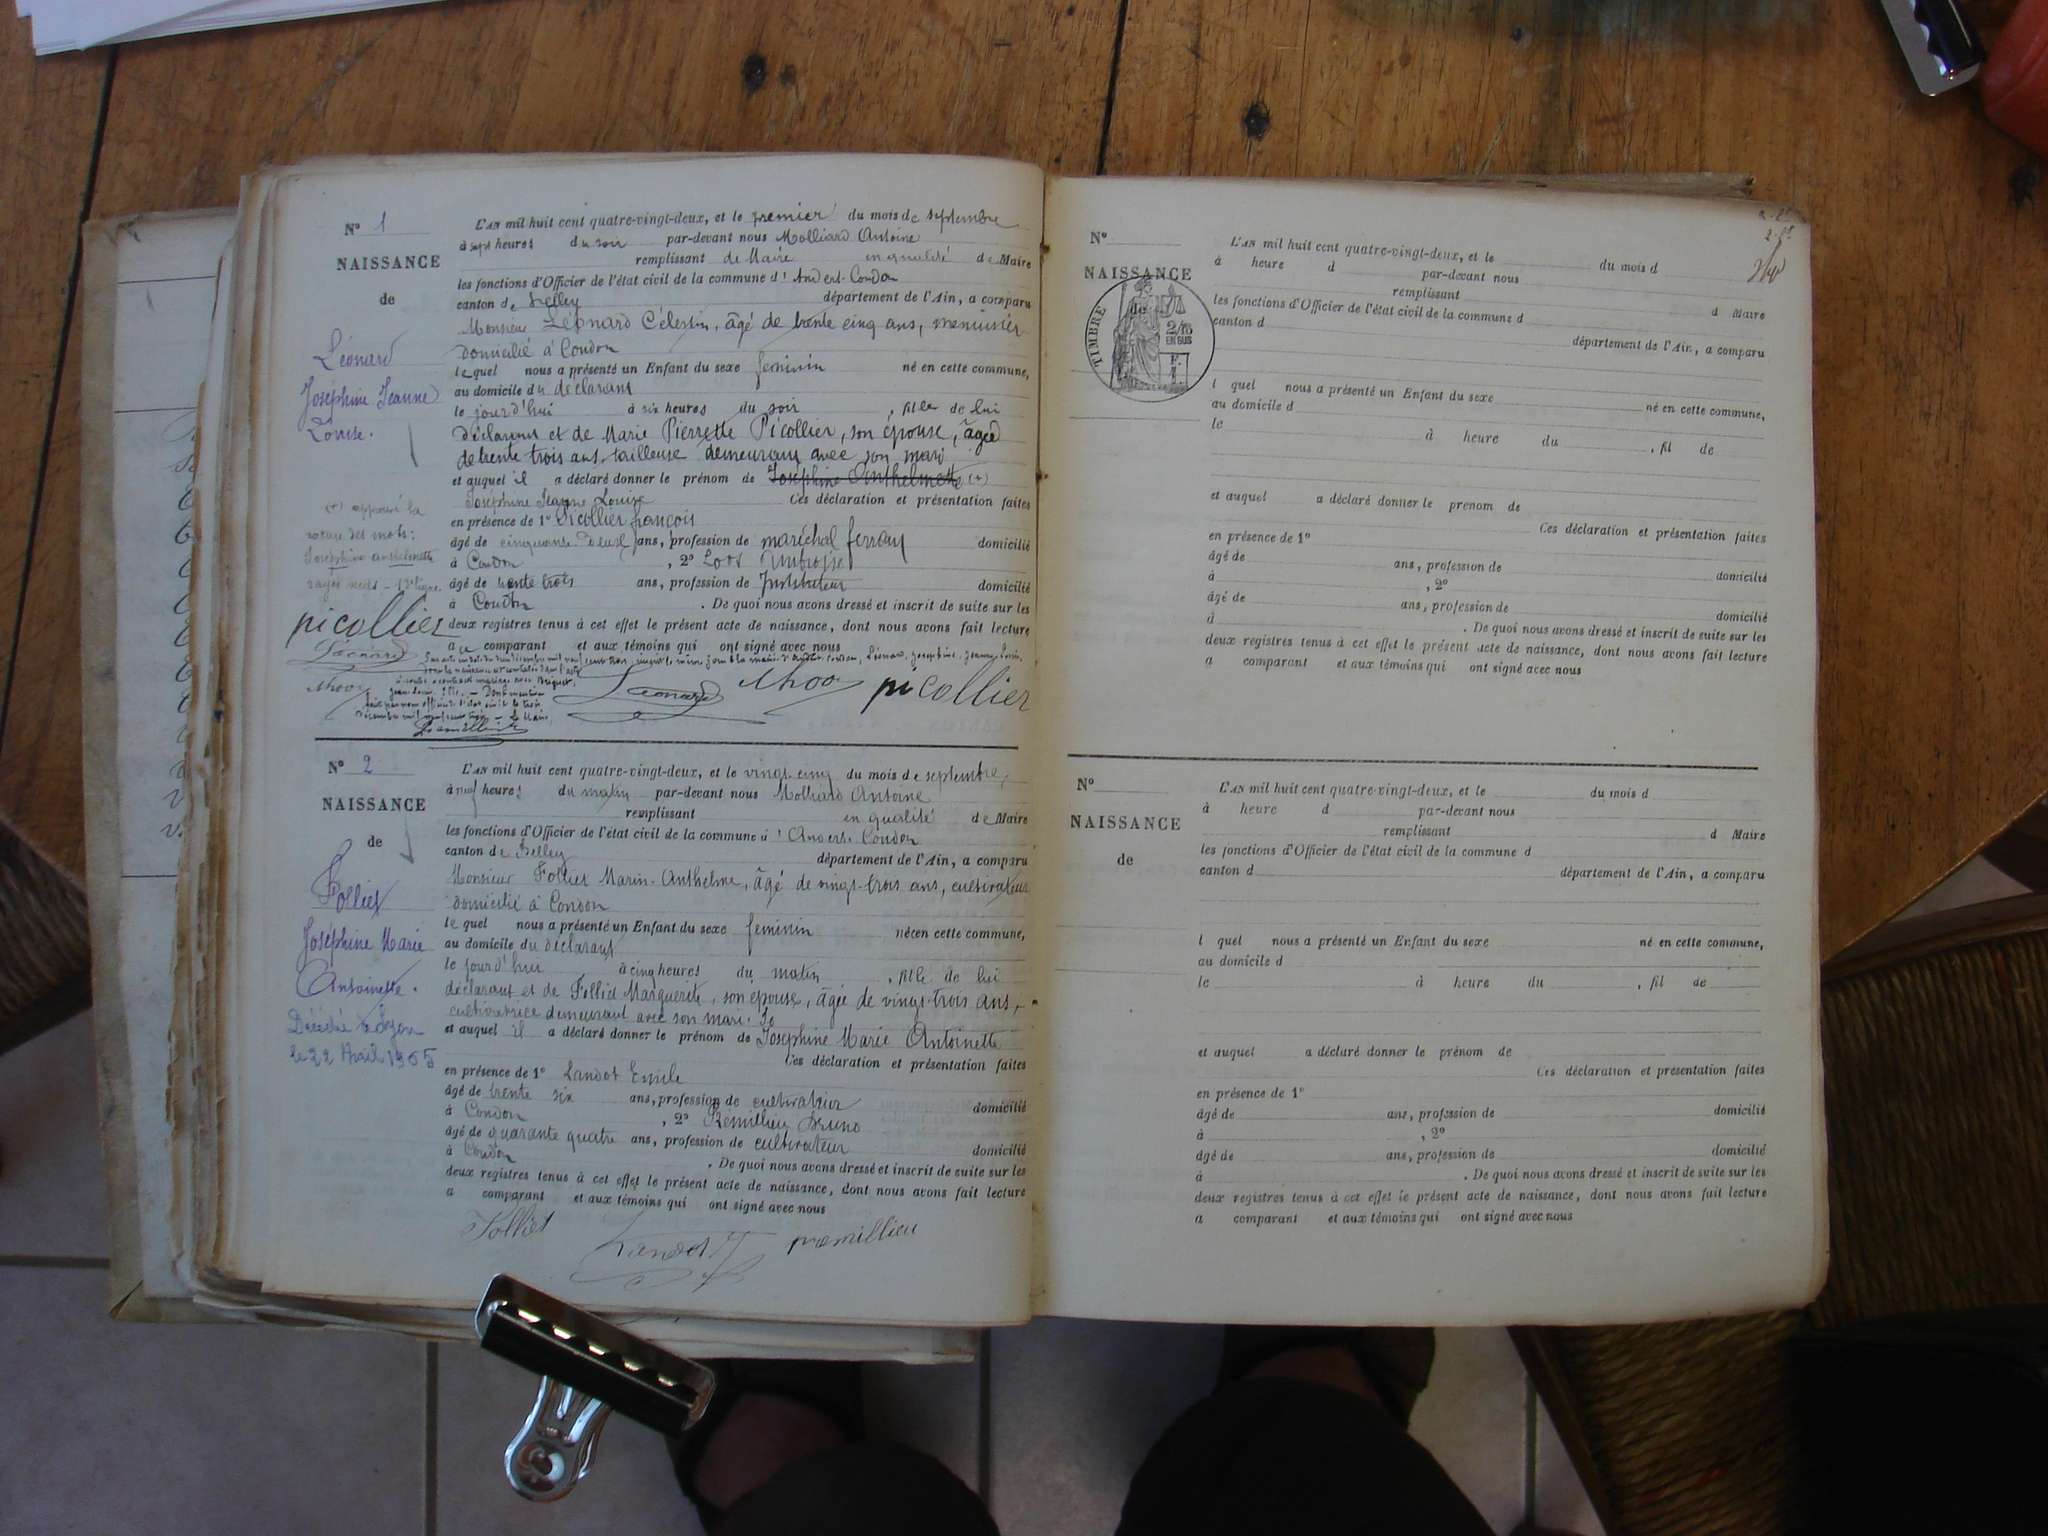 N° 1
NAISSANCE
de
Léonard
Joséphine Jeanne
Louise.
L'AN mil huit cent quatre-vingt-deux, et le premier du mois de septembre
à sept heures du soir par-devant nous Molliard Antoine
remplissant de Maire en qualité de Maire
les fonctions d'Officier de l'état civil de la commune d'Andert-Condon
canton de Belley département de l'Ain, a comparu
Monsieur Léonard Célestin, âgé de trente cinq ans, menuisier
domicilié à Condon
lequel nous a présenté un Enfant du sexe feminin né en cette commune,
au domicile du déclarant
le jourd'hui à six heures du soir, fille de lui
déclarant et de Marie Pierrette Picollier, son épouse, âgée
de trente trois ans, tailleuse demeurant avec son mari
et auquel il a déclaré donner le prénom de Joséphine Anthelmette (+)
Joséphine Jeanne Louise Ces déclaration et présentation faites
en présence de 1° Picollier françois
âgé de cinquante deux ans, profession de maréchal ferrant domicilié
à Condon, 2° Loos Ambroise
âgé de trente trois ans, profession de Instituteur domicilié
à Condon. De quoi nous avons dressé et inscrit de suite sur les
deux registres tenus à cet effet le présent acte de naissance, dont nous avons fait lecture
au comparant et aux témoins qui ont signé avec nous
(+) approuvé la
rature des mots:
Joséphine anthelmette
rayés
picollier
Léonard
Léonard
picollier
N° 2
NAISSANCE
de
Folliet
Joséphine Marie
Antoinette.
Décédé à
le 22 Avril 1965
L'AN mil huit cent quatre-vingt-deux, et le vingt-cinq du mois de septembre,
à neuf heures du matin par-devant nous Molliard Antoine
remplissant en qualité de Maire
les fonctions d'Officier de l'état civil de la commune d'Andert-Condon
canton de Belley département de l'Ain, a comparu
Monsieur Folliet Marin-Anthelme, âgé de vingt-trois ans, cultivateur
domicilié à Condon
lequel nous a présenté un Enfant du sexe feminin née en cette commune,
au domicile du déclarant
le jourd'hui à cinq heures du matin, fille de lui
déclarant et de Folliet Marguerite, son épouse, âgée de vingt-trois ans,
cultivatrice demeurant avec son mari.
et auquel il a déclaré donner le prénom de Joséphine Marie Antoinette
Ces déclaration et présentation faites
en présence de 1° Landot Emile
âgé de trente six ans, profession de cultivateur domicilié
à Condon, 2° Rémillieu Bruno
âgé de quarante quatre ans, profession de cultivateur domicilié
à Condon. De quoi nous avons dressé et inscrit de suite sur les
deux registres tenus à cet effet le présent acte de naissance, dont nous avons fait lecture
a comparant et aux témoins qui ont signé avec nous
Folliet
Landot
N°
NAISSANCE
de
TIMBRE
L'AN mil huit cent quatre-vingt-deux, et le du mois d
à heure d par-devant nous
remplissant
d Maire
les fonctions d'Officier de l'état civil de la commune d
canton d département de l'Ain, a comparu
l quel nous a présenté un Enfant du sexe né en cette commune,
au domicile d
le à heure du, fil de
et auquel a déclaré donner le prenom de
Ces déclaration et présentation faites
en présence de 1°
âgé de ans, profession de domicilié
à, 2°
âgé de ans, profession de domicilié
à. De quoi nous avons dressé et inscrit de suite sur les
deux registres tenus à cet effet le présent acte de naissance, dont nous avons fait lecture
a comparant et aux témoins qui ont signé avec nous
N°
NAISSANCE
de
L'AN mil huit cent quatre-vingt-deux, et le du mois d
à heure d par-devant nous
remplissant d Maire
les fonctions d'Officier de l'état civil de la commune d
canton d département de l'Ain, a comparu
l quel nous a présenté un Enfant du sexe né en cette commune,
au domicile d
le à heure du, fil de
et auquel a déclaré donner le prénom de
Ces déclaration et présentation faites
en présence de 1°
âgé de ans, profession de domicilié
à, 2°
âgé de ans, profession de domicilié
à. De quoi nous avons dressé et inscrit de suite sur les
deux registres tenus à cet effet le présent acte de naissance, dont nous avons fait lecture
a comparant et aux témoins qui ont signé avec nous